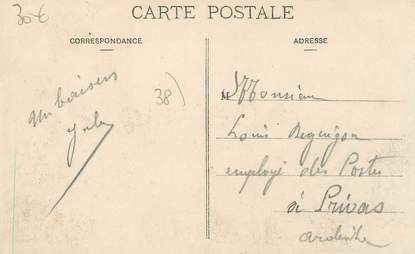 30€
CARTE POSTALE
CORRESPONDANCE
ADRESSE
38)
baisers
Monsieur
Louis
employé des Postes
à Privas
Ardèche